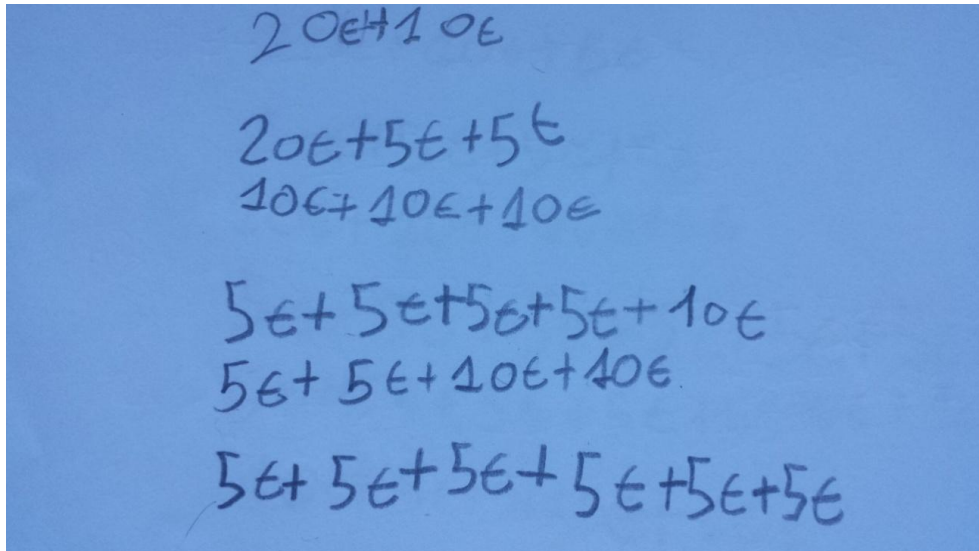 20€+10€
20€+5€+5€
10€+10€+10€
5€+5€+5€+5€+10€
5€+5€+10€+10€
5€+5€+5€+5€+5€+5€